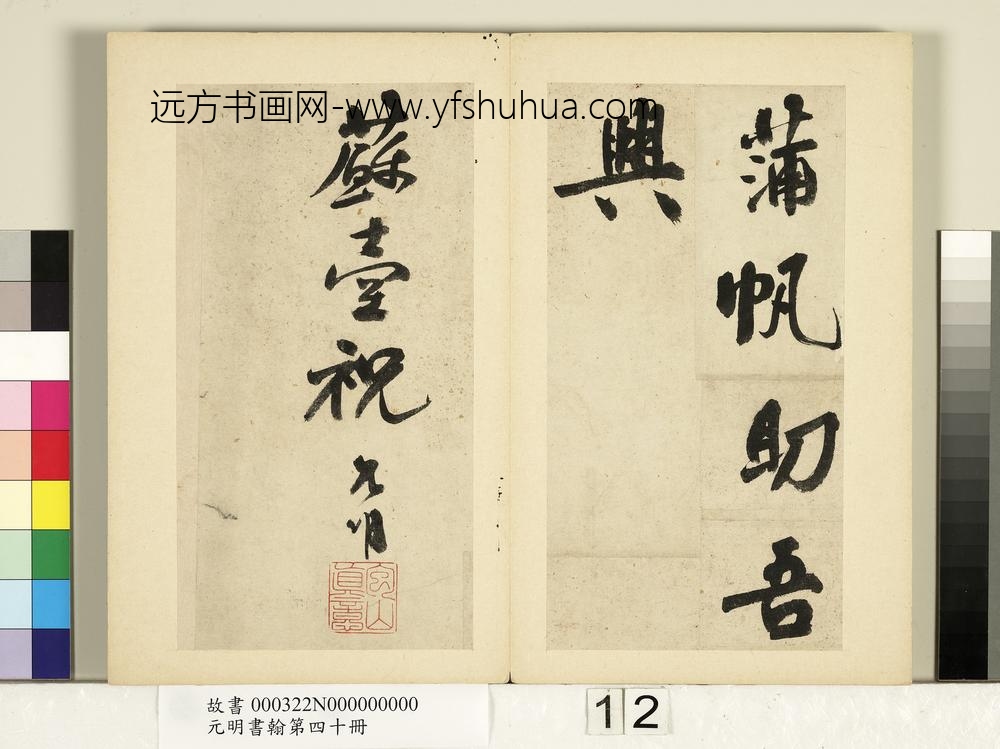 远方书画网-www.yfshuhua.com
蒲帆助吾
興
蘇臺祝允明
故書 000322N000000000
元明書翰第四十冊
12